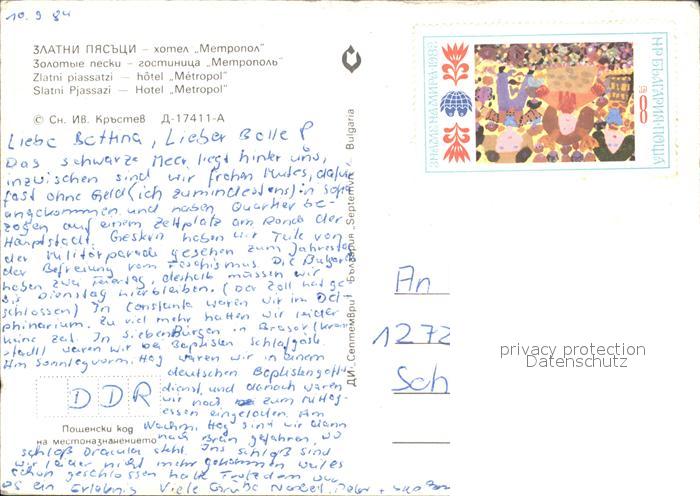 10.9.84
ЗЛАТНИ ПЯСЪЦИ – хотел „Метропол"
Золотые пески – гостиница „Метрополь"
Zlatni piassatzi – hôtel „Métropol"
Slatni Pjassazi – Hotel „Metropol"
© Сн. Ив. Кръстев Д-17411-А
Liebe Bettina, Lieber Bolle
Das schwarze Meer liegt hinter uns,
inzwischen sind wir frohen Mutes, dafür
fast ohne Geld (ich zumindestens) in Sofia
angekommen und haben Quartier be-
zogen auf einem Zeltplatz am Rande der
Hauptstadt. Gestern haben wir Teile von
der Militärparade gesehen zum Jahrestag
der Befreiung vom Faschismus. Die Bulgaren
haben zwei Feiertage, deshalb müssen wir
bis Dienstag hierbleiben. (Der Zoll hat ge-
schlossen) In Constanta waren wir im Del-
phinarium. Zu viel mehr hatten wir leider
keine Zeit. In Siebenbürgen in Brasov (Kron-
stadt) waren wir bei Baptisten schlafgäste.
Am Sonntagvorm.ttag waren wir in einem
deutschen Baptistengotts-
dienst, und danach waren
wir noch zum Mittag-
essen eingeladen. Am
Nachmittag sind wir dann
nach Bran gefahren, wo
Schloß Dracula steht. Ins Schloß sind
wir leider nicht mehr gekommen weil es
schon geschlossen hatte Trotzdem war
es ein Erlebnis Viele Grüße
DDR
Пощенски код
на местоназначението
ДИ „Септември" – България „Septemvri" – Bulgaria
ЗНАМЕ НА МИРА·1982
НР БЪЛГАРИЯ·ПОЩА
8
An
1272
Sch
privacy protection
Datenschutz